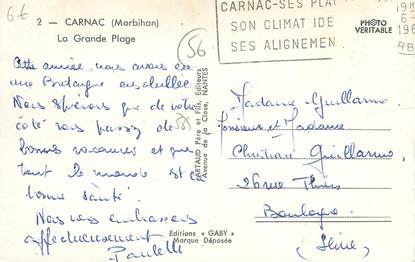 6€
2 – CARNAC (Morbihan)
La Grande Plage
56
CARNAC-SES PLA
SON CLIMAT IDE
SES ALIGNEMEN
PHOTO
VERITABLE
Cette année nous avons eu
une Bretagne ensoleillée
Nous espérons que de votre
côté vous passez de
bonnes vacances et que
tout le monde est en
bonne santé.
Nous vous embrassons
affectueusement
Paulette
ARTAUD Père et Fils, Editeurs
Avenue de la Close, NANTES
Editions « GABY »
Marque Déposée
Madame Guillarme
Monsieur et Madame
Christian Guillarme
26 rue Thiers
Boulogne
(Seine)